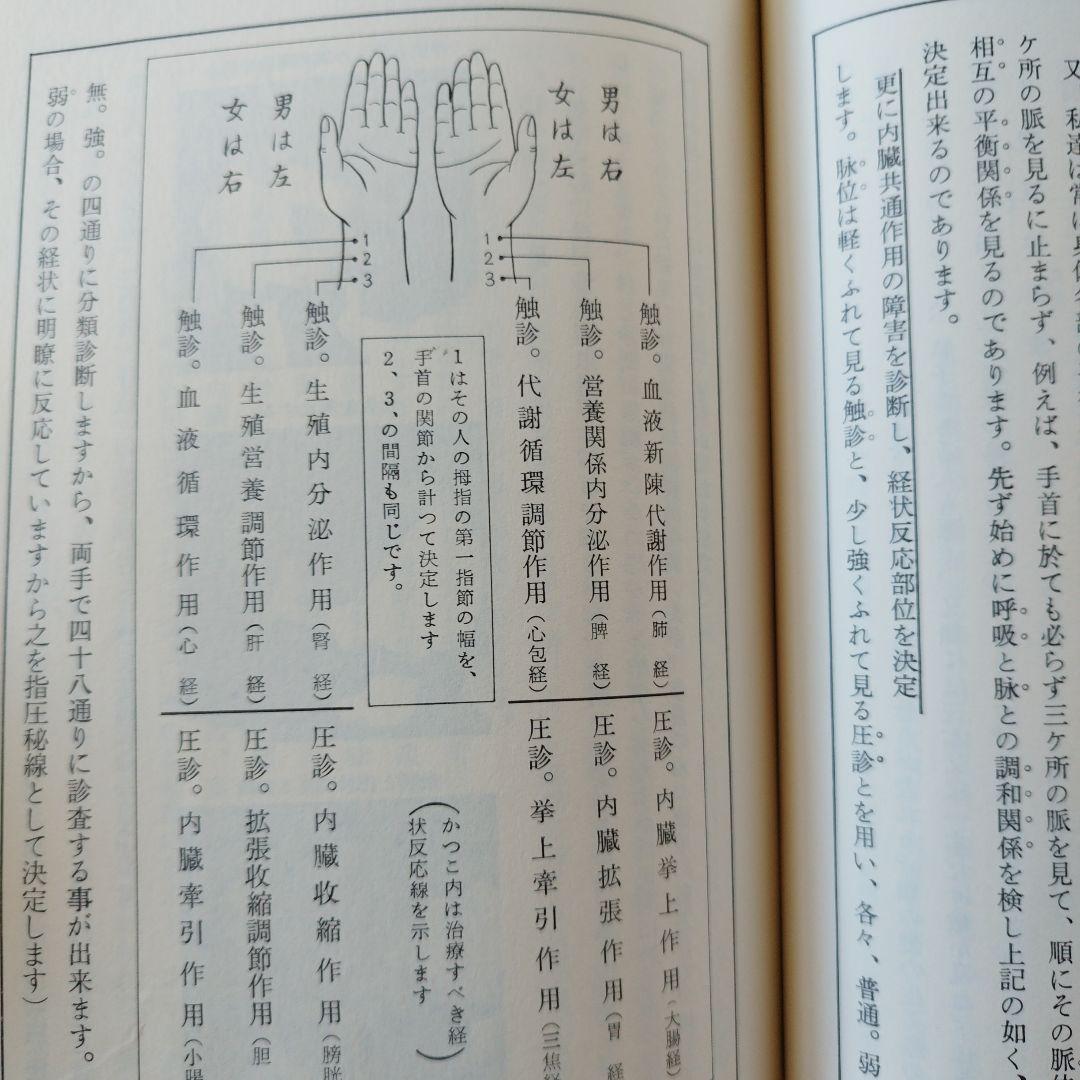 ケ所の脈を見るに止まらず、例えば、手首に於ても必らず三ケ所の脈を見て、順にその脈
相互の平衡関係を見るのであります。先ず始めに呼吸と脉との調和関係を検し上記の如く、
決定出来るのであります。
更に内臓共通作用の障害を診断し、経状反応部位を決定
します。脉位は軽くふれて見る触診と、少し強くふれて見る圧診とを用い、各々、普通。弱
男は右
女は左
男は左
女は右
1
2
3
1
2
3
触診。血液新陳代謝作用(肺経)
圧診。内臓挙上作用(大腸経)
触診。営養関係内分泌作用(脾経)
圧診。内臓拡張作用(胃経
触診。代謝循環調節作用(心包経)
圧診。挙上牽引作用(三焦経
1はその人の拇指の第一指節の幅を、
手首の関節から計つて決定します
2、3、の間隔も同じです。
(かつこ内は治療すべき経
状反応線を示します)
触診。生殖内分泌作用(腎経)
圧診。内臓收縮作用(膀胱
触診。生殖営養調節作用(肝経)
圧診。拡張收縮調節作用(胆
触診。血液循環作用(心経)
圧診。内臓牽引作用(小腸
無。強。の四通りに分類診断しますから、両手で四十八通りに診査する事が出来ます。
弱の場合、その経状に明瞭に反応していますから之を指圧秘線として決定します)